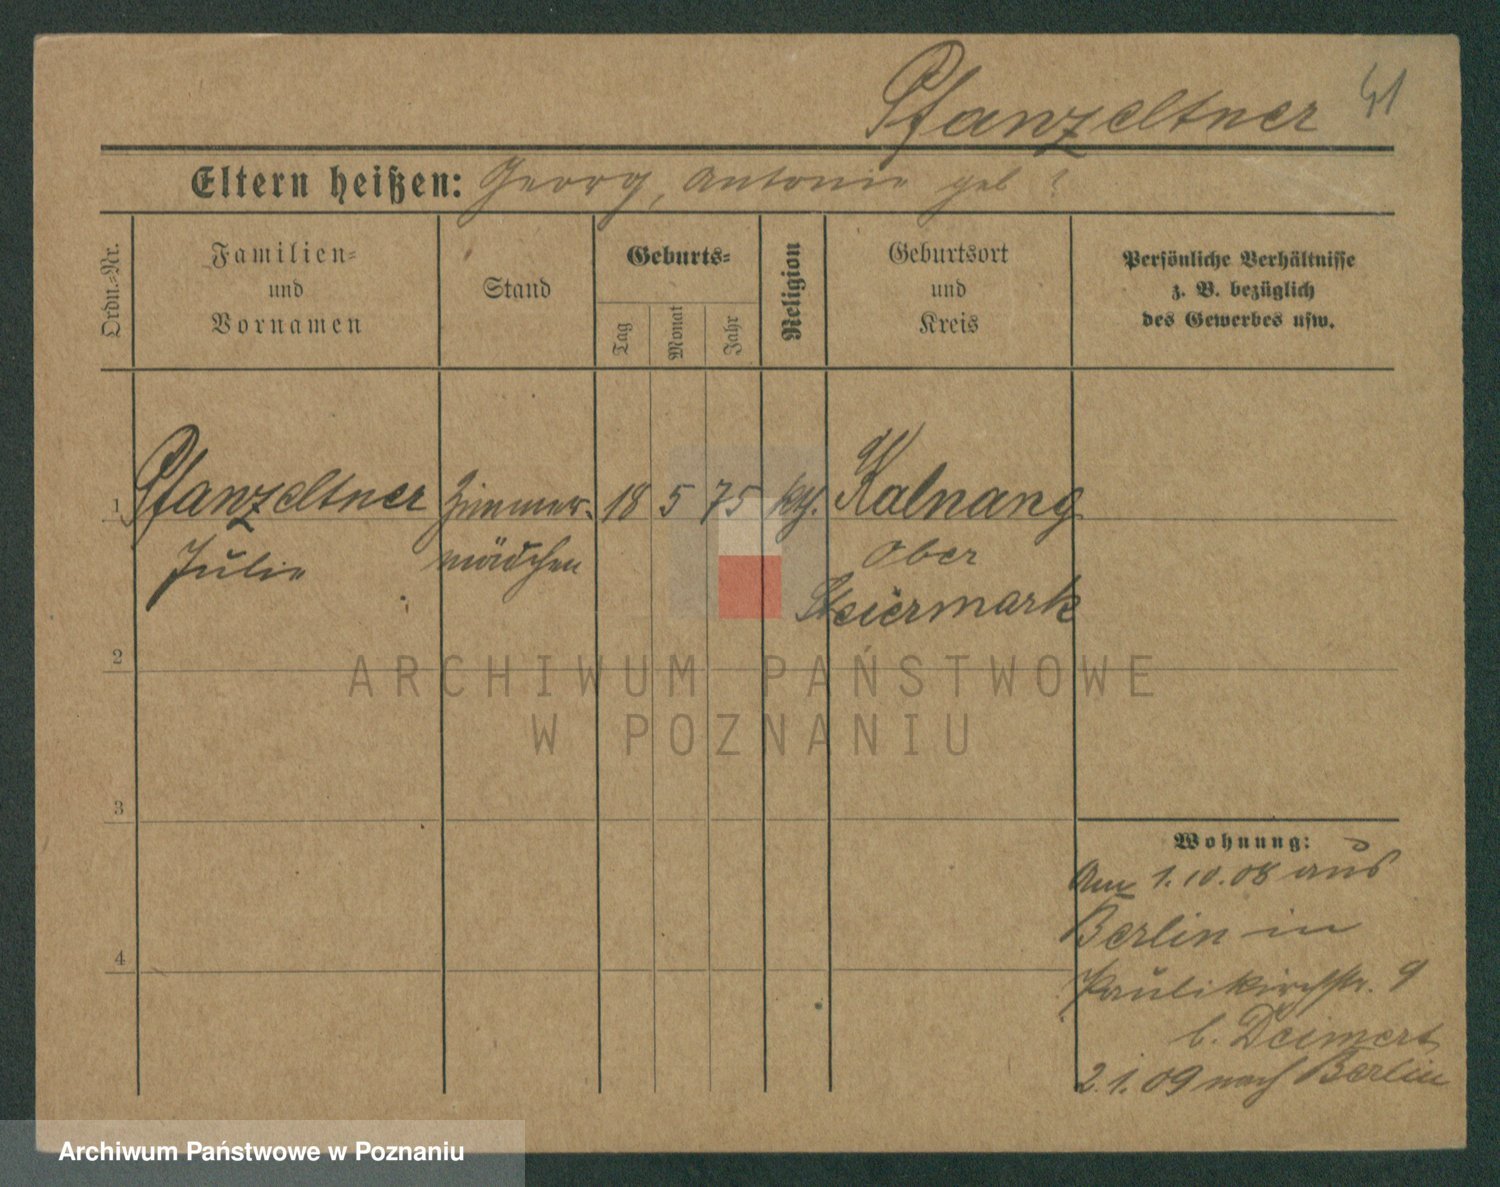 Pfanzeltner 41
Eltern heißen: Georg, Antonie geb ?
Ordn.-Nr.
Familien-
und
Vornamen
Stand
Geburts-
Tag
Monat
Jahr
Religion
Geburtsort
und
Kreis
Persönliche Verhältnisse
z. B. bezüglich
des Gewerbes usw.
1 Pfanzeltner Zimmer- 18 5 75 kth. Kalnang
Julie mädchen Ober
Steiermark
2
3
4
Wohnung:
Am 1.10.08 aus
Berlin in
Paulikirchstr. 9
b. Deimert
2.1.09 nach Berlin
ARCHIWUM PAŃSTWOWE
W POZNANIU
Archiwum Państwowe w Poznaniu